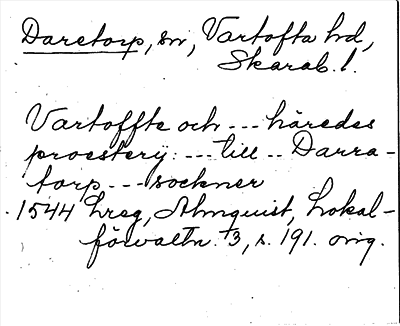 Daretorp, sn, Vartofta hd,
Skarab. l.
Vartoffte och --- häredes
proestery: --- till -- Darra-
torp --- sockner
1544 Lreg, Almquist, Lokal-
förvaltn. 3, s. 191. orig.